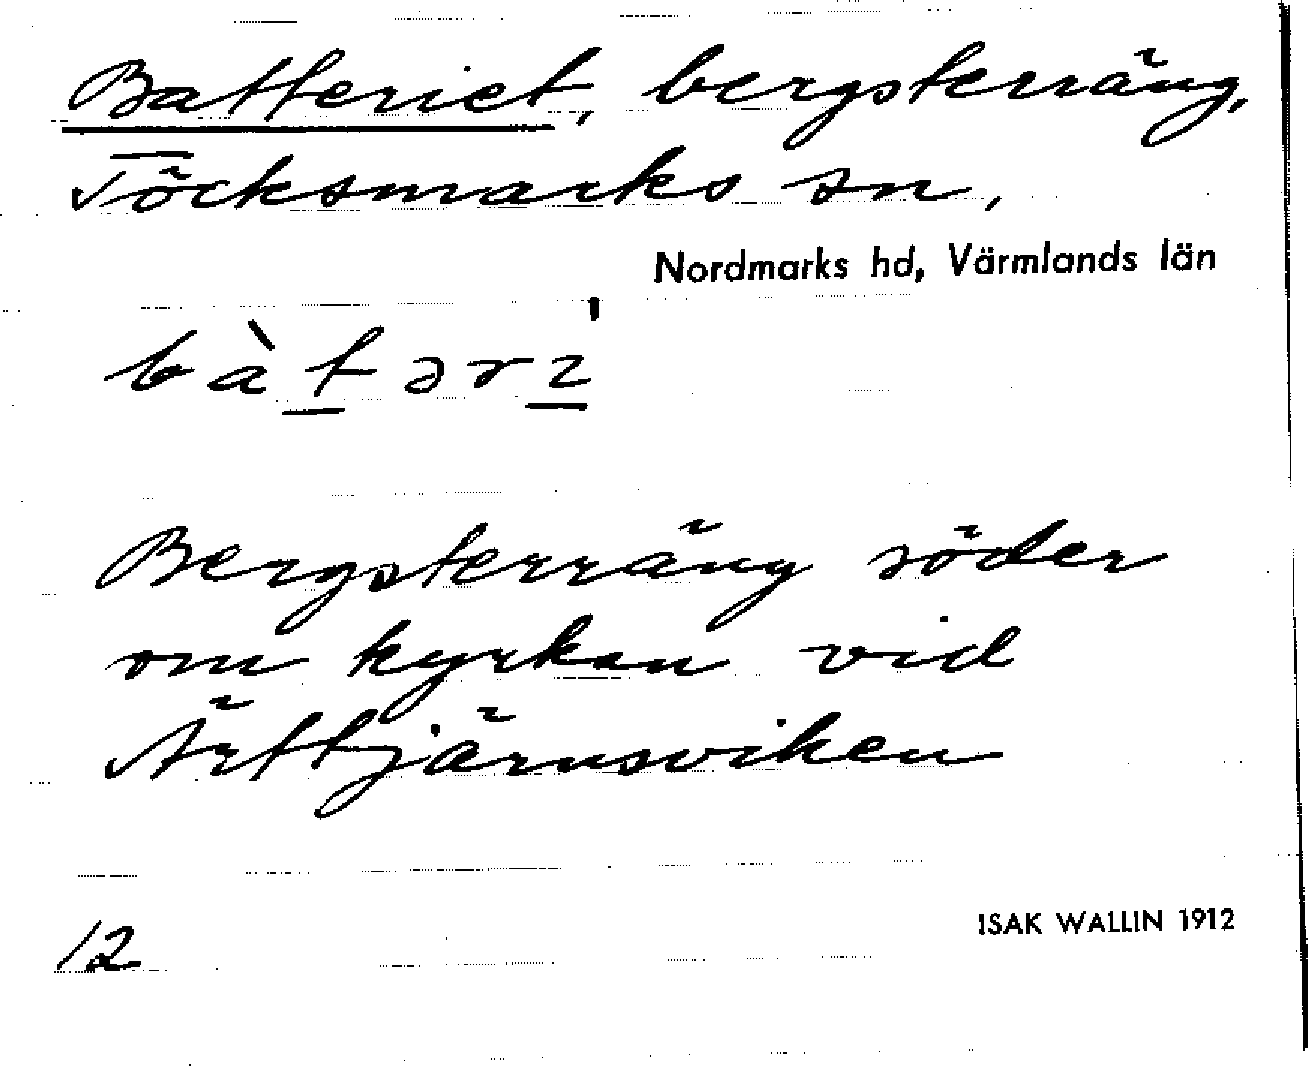 Batteriet, bergsterräng,
Töcksmarks sn,
Nordmarks hd, Värmlands län
bàtərı̍
Bergsterräng söder
om kyrkan vid
Ärttjärnsviken
12
ISAK WALLIN 1912